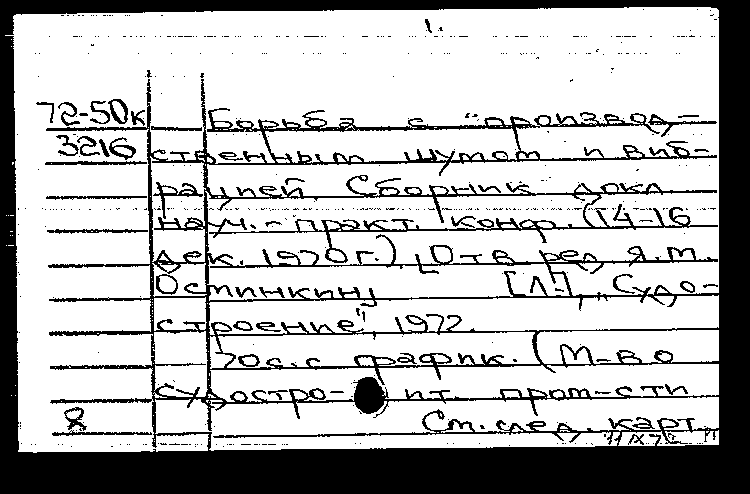 1.
72-50к Борьба с "производ-
3216 ственным шумом и виб-
рацией. Сборник докл.
науч.-практ. конф. (14-16
дек. 1970 г.). [Отв. ред. Я.М.
Остинкин] [Л.], „Судо-
строение", 1972.
70 с. с график. (М-во
судостро- ит. пром-сти
8 См. след. карт.